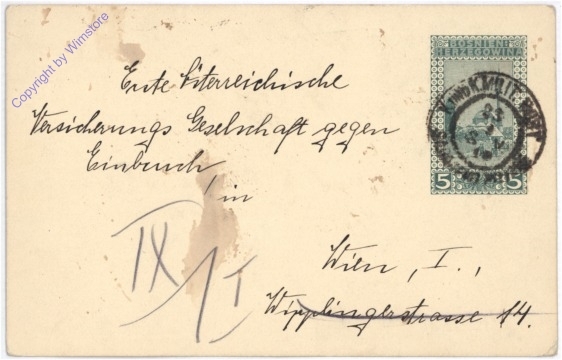 Copyright by Wimstore
BOSNIEN-
HERZEGOWINA
Erste Österreichische
Versicherungs Gesellschaft gegen
Einbruch
in
5 5
IX/I
Wien, I.,
Wipplingerstrasse 14.